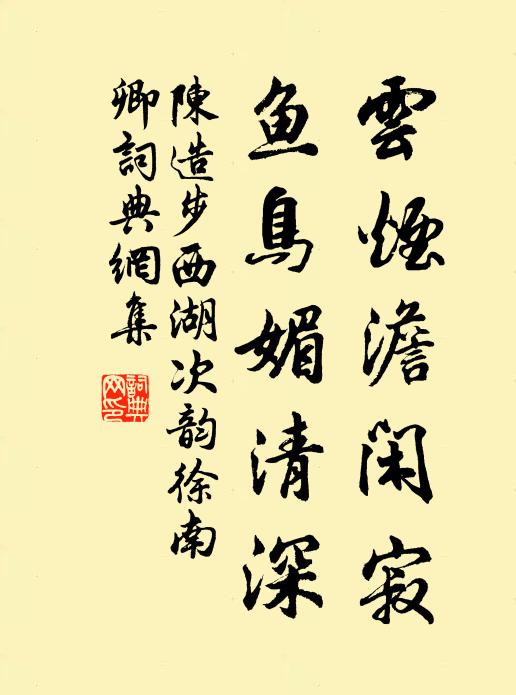 雲煙澹閑寂
鱼鳥媚清深
陳造步西湖次韵徐南
卿詞典網集
詞典网印